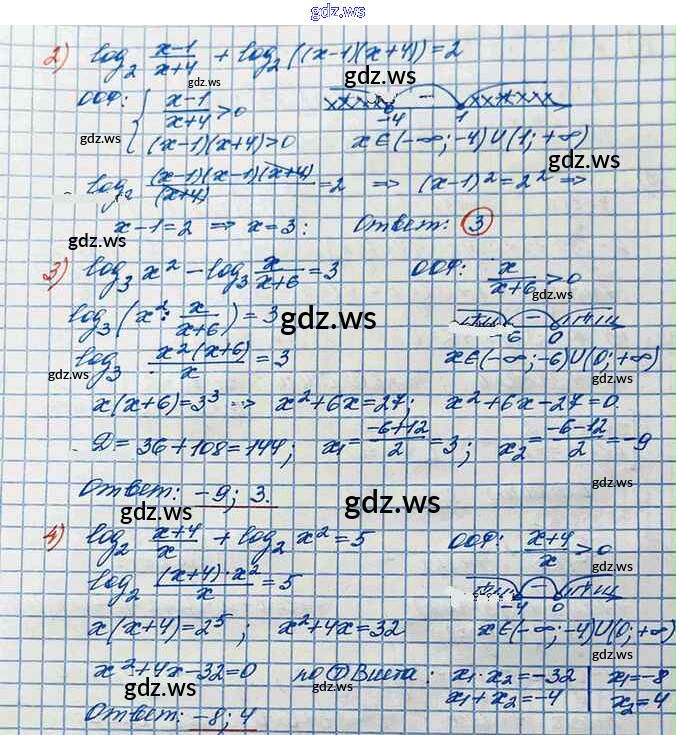 gdz.ws
2) log₂ (x-1)/(x+4) + log₂((x-1)(x+4)) = 2
gdz.ws
ООФ: { (x-1)/(x+4) > 0
-4 - 1
gdz.ws
(x-1)(x+4) > 0 x∈(-∞; -4)∪(1; +∞)
gdz.ws
log₂ (x-1)(x-1)(x+4)/(x+4) = 2 ⇒ (x-1)² = 2² ⇒
gdz.ws
x-1 = 2 ⇒ x = 3: Ответ: 3
3) log₃ x² - log₃ x/(x+6) = 3 ООФ: x/(x+6) > 0
log₃(x² : x/(x+6)) = 3 -6 - 0
gdz.ws
log₃ x²(x+6)/x = 3 x∈(-∞; -6)∪(0; +∞)
gdz.ws gdz.ws
x(x+6) = 3³ ⇒ x²+6x = 27; x²+6x-27 = 0.
D = 36+108 = 144; x₁ = (-6+12)/2 = 3; x₂ = (-6-12)/2 = -9
gdz.ws
Ответ: -9; 3.
gdz.ws gdz.ws
4) log₂ (x+4)/x + log₂ x² = 5 ООФ: (x+4)/x > 0
log₂ (x+4)·x²/x = 5 -4 - 0
gdz.ws
x(x+4) = 2⁵; x²+4x = 32 x∈(-∞; -4)∪(0; +∞)
x²+4x-32 = 0 по Т Виета: x₁·x₂ = -32 | x₁ = -8
gdz.ws gdz.ws
x₁+x₂ = -4 | x₂ = 4
Ответ: -8; 4
gdz.ws